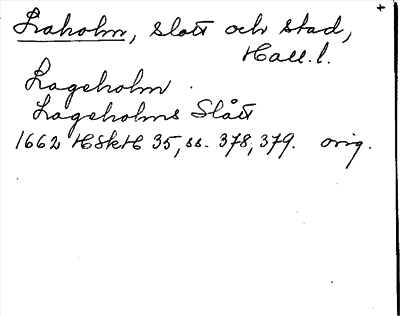 +
Laholm, slott och stad,
Hall. l.
Lageholm.
Lageholms Slått
1662 HSkH 35, ss. 378, 379. orig.